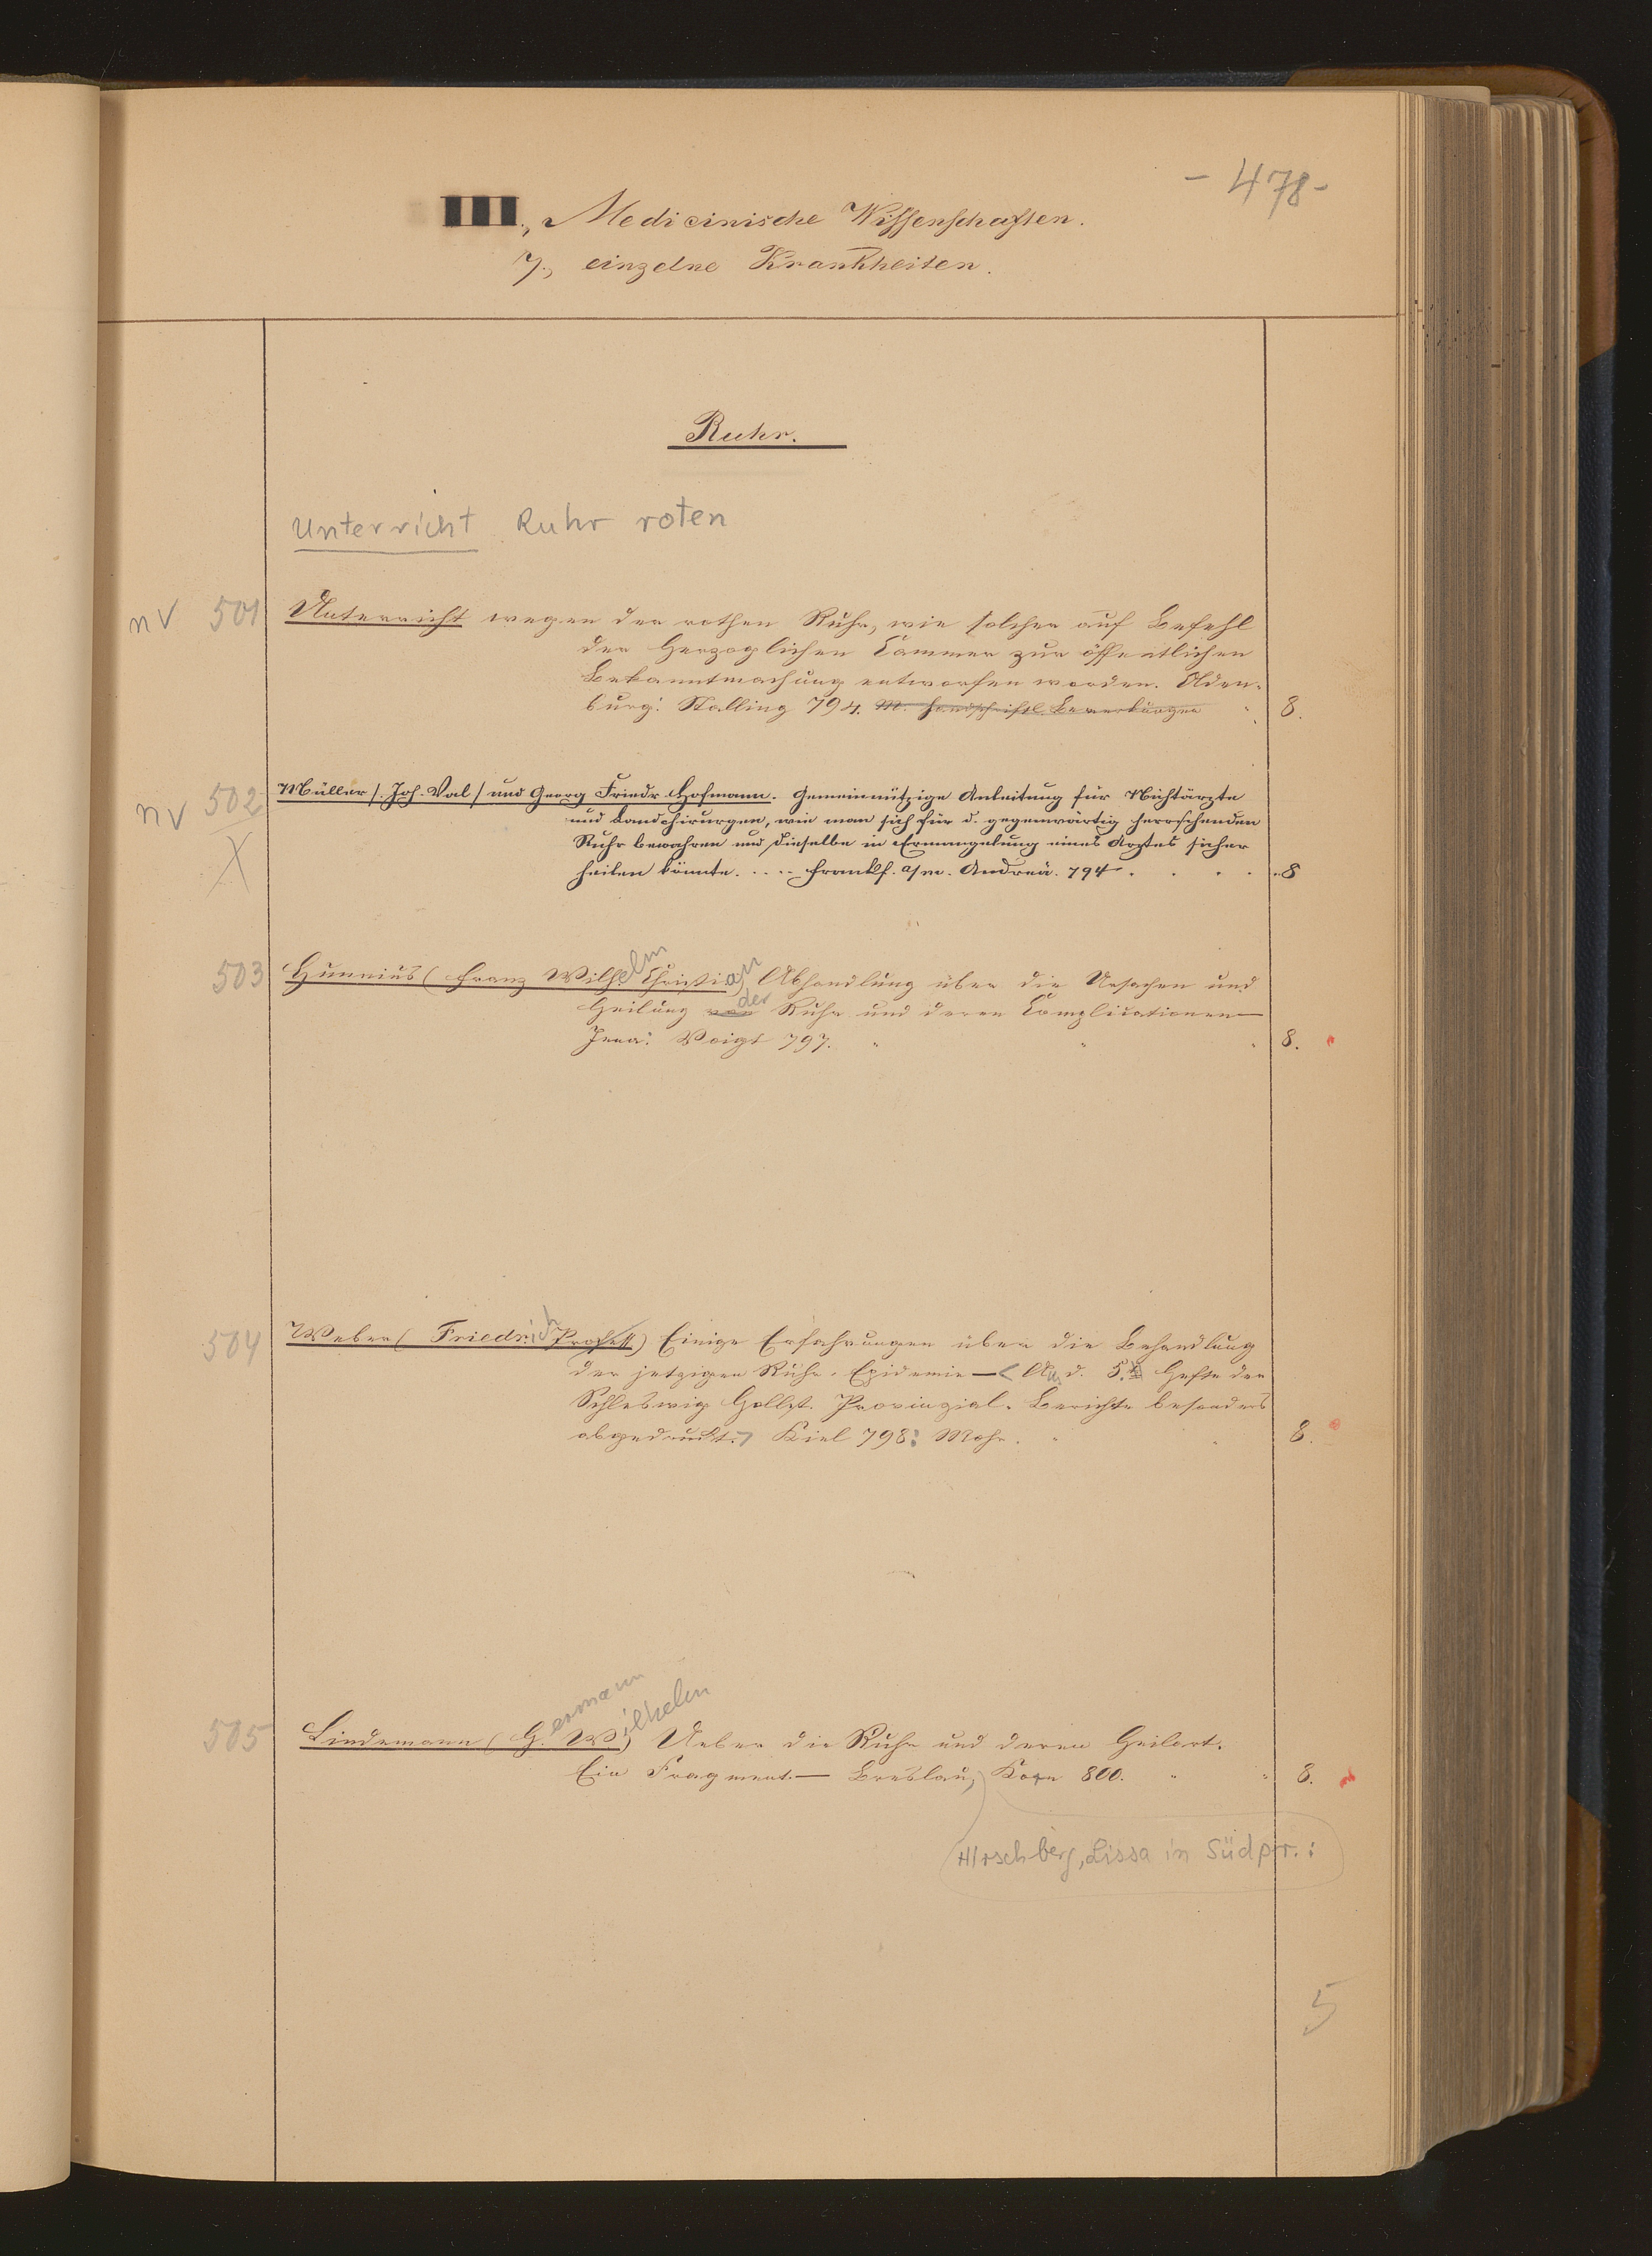 - 478 -
III., Medicinische Wissenschaften.
7., einzelne Krankheiten.
Ruhr.
Unterricht Ruhr roten
nv 501 Unterricht wegen der rothen Ruhr, wie solcher auf Befehl
der Herzoglichen Cammer zur öffentlichen
Bekanntmachung entworfen worden. Olden-
burg: Stalling 794. M. handschriftl. Bemerkungen 8.
nv 502 Müller /. Joh. Val / und Georg Friedr Hofmann. Gemeinnützige Anleitung für Nichtärzte
X und Landchirurgen, wie man sich für d. gegenwärtig herrschenden
Ruhr bewahren und dieselbe in Ermangelung eines Arztes sicher
heilen könnte. . . . . Frankf. a/m. Andreä. 794 . . . . 8
503 Hunnius (Franz Wilhelm Christian) Abhandlung über die Ursachen und
Heilung von der Ruhr und deren Complicationen —
Jena: Voigt 797. 8.
504 Weber (Friedrich Profess.) Einige Erfahrungen über die Behandlung
der jetzigen Ruhr-Epidemie — < Aus d. 5. Hefte der
Schleswig Hollst. Provinzial-Berichte besonders
abgedruckt. > Kiel 798: Mohr. 8.
505 Lindemann (Hermann Wilhelm) Ueber die Ruhr und deren Heilart.
Ein Fragment. — Breslau, Korn 800. 8.
Hirschberg, Lissa in Südpr.:
5